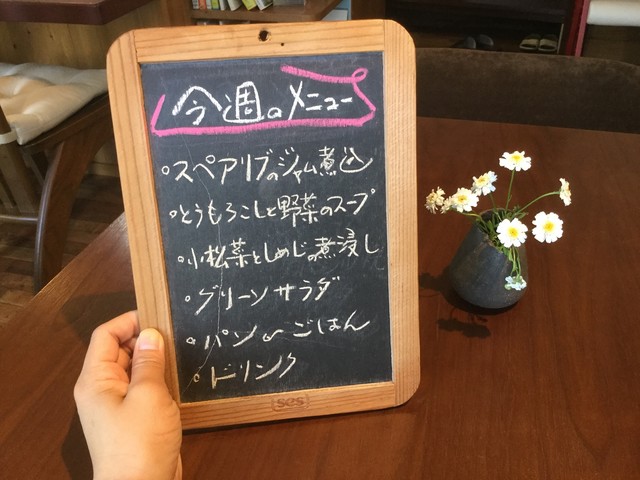 今週のメニュー
・スペアリブのジャム煮込
・とうもろこしと野菜のスープ
・小松菜としめじの煮浸し
・グリーンサラダ
・パン or ごはん
・ドリンク
ses